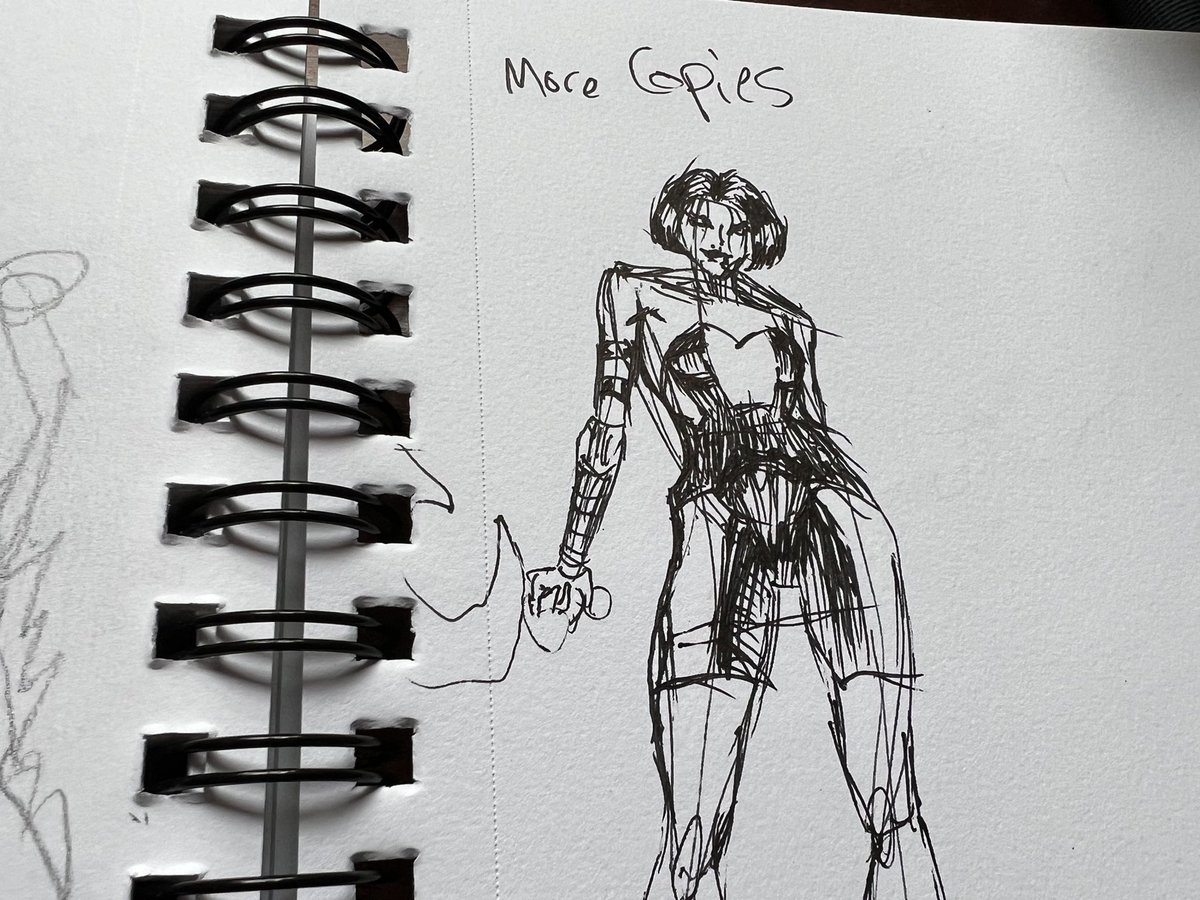 More Copies